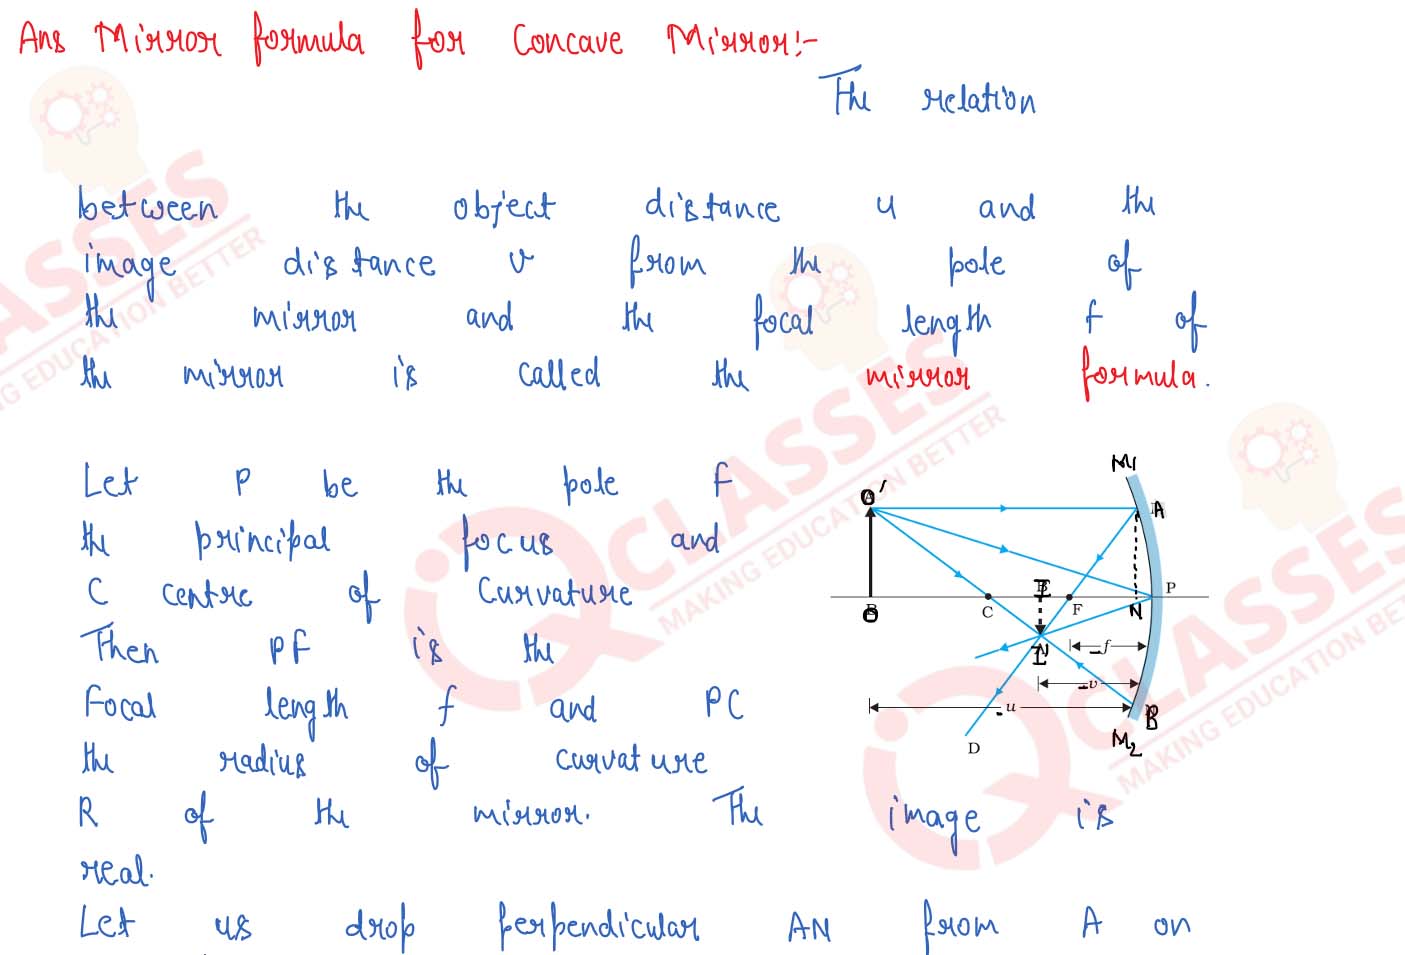 Ans Mirror formula for Concave Mirror:-
The relation
between the object distance u and the
image distance v from the pole of
the mirror and the focal length f of
the mirror is called the mirror formula.
Let P be the pole F
the principal focus and
C centre of Curvature
Then PF is the
Focal length f and PC
the radius of curvature
R of the mirror. The image is
real.
Let us drop perpendicular AN from A on
M1
O'
A
I
P
C
F
N
O
I'
-f
-v
-u
B
M2
D
CLASSES
MAKING EDUCATION BETTER
CLASSES
MAKING EDUCATION BETTER
CLASSES
MAKING EDUCATION BETTER